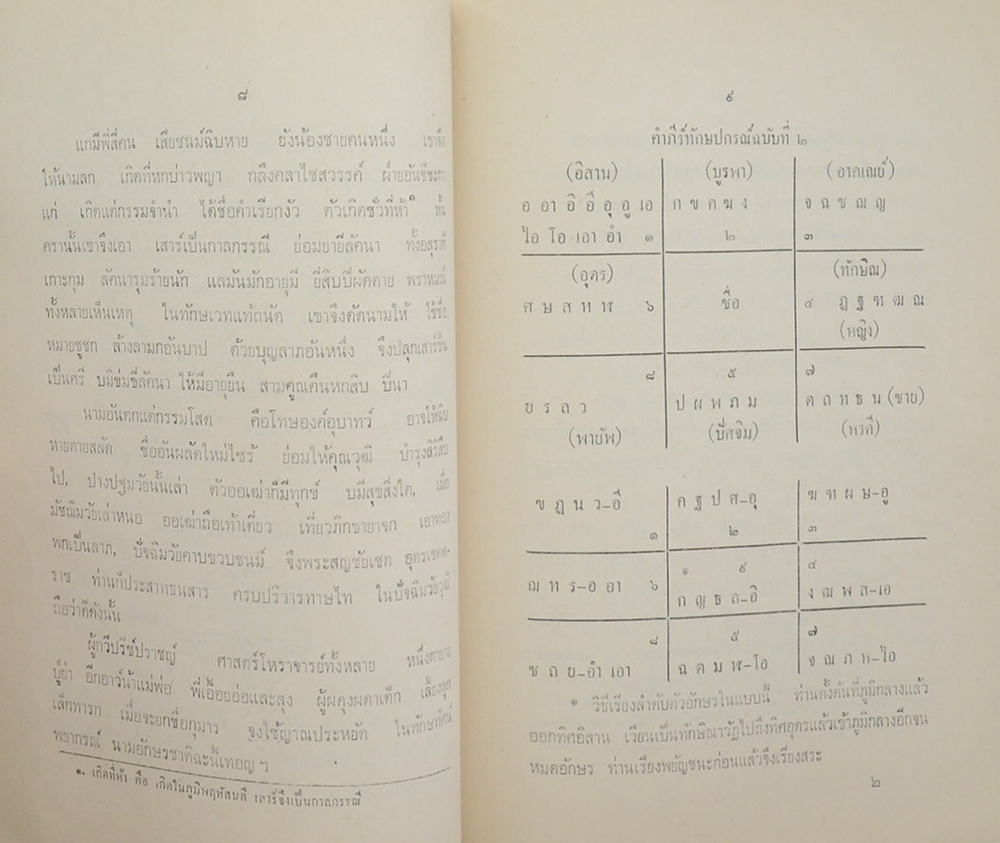 ๘
แกมีพี่สี่คน เสียชนม์ฉิบหาย ยังน้องชายคนหนึ่ง
ให้นามลก เกิดที่หกบ่าวพญา กลิ้งคลาไชสวรรค์
แก่ เกิดแต่กรรมจำนำ ได้ชื่อคำเรียกงัว ตัวเกิดชั่วที่ห้า๑
ครานั้นเขาจึงเอา เสาร์เป็นกาลกรรณี ย่อมยายีลัคนา
เกาะกุม ลัคนารุมร้ายนัก แลมันมักอายุมี ยี่สิบปีผัดตาย พราหมณ์
ทั้งหลายเห็นเหตุ ในทักษเวทแท้ถนัด เขาจึงดัดนามให้ ใช้ชื่อ
หมายชูชก ล้างลามกอันบาป ด้วยบุญลาภอันหนึ่ง จึงปลุกเสาร์ขึ้น
เป็นศรี บมิข่มขี่ลัคนา ให้มีอายุยืน สามคูณคืนหกสิบ ปีนา
นามอันตกแต่กรรมโสด คือโทษองค์อุบาทว์ อาจให้ฉิบ
หายตายสลัด ชื่ออันผลัดใหม่ไซร้ ย่อมให้คุณวุฒิ บำรุงสิริสืบ
ไป, ปางปฐมวัยนั้นเล่า ตัวออเฒ่าก็มีทุกข์ บมีสุขสิ่งใด, เมื่อ
มัชฌิมวัยเล่าหนอ ออเฒ่าถือเท้าเดี่ยว เที่ยวภิกขายาจก เอาทอง
พกเป็นลาภ, ปัจฉิมวัยคาบขวบชนม์ จึงพระสญชัยเชต อุดรเขตต-
ราช ท่านก็ประสาทธนสาร ครบปริวารทาษไท ในปัจฉิมวัยวุฒิ
ถือว่าดีดังนั้น
ผู้กวีปรีชปราชญ์ ศาสตร์โหราจารย์ทั้งหลาย หนึ่งตายาย
ปู่ย่า อีกอาว์น้าแม่พ่อ พี่เอื้อยอ่อและลุง ผู้ผดุงผดาเด็ก เลี้ยงลูก
เล็กทารก เมื่อจะยกชื่อกุมาร จงใช้ญาณประหยัด ในทักษทัศน์
พยากรณ์ นามอักษรชาติฉะนี้เทอญ ฯ
๑. เกิดที่ห้า คือ เกิดในภูมิพฤหัสบดี เสาร์จึงเป็นกาลกรรณี
๙
คำภีร์ทักษปกรณ์ฉบับที่ ๒
(อิสาน) (บูรพา) (อาคเณย์)
อ อา อิ อี อุ อู เอ ก ข ค ฆ ง จ ฉ ช ฌ ญ
ไอ โอ เอา อำ ๑ ๒ ๓
(อุดร) (ทักษิณ)
ศ ษ ส ห ฬ ๖ ชื่อ ๔ ฎ ฐ ฑ ฒ ณ
(หญิง)
๘ ๕ ๗
ย ร ล ว ป ผ พ ภ ม ต ถ ท ธ น (ชาย)
(พายัพ) (ปัศจิม) (หรดี)
ข ฎ น ว-อี ค ฐ ป ศ-อุ ฆ ฑ ผ ษ-อู
๑ ๒ ๓
ฌ ท ร-อ อา ๖ ๑ ๙ ๔
ก ญ ธ ล-อิ ง ฒ พ ส-เอ
๘ ๕ ๗
ช ถ ย-อำ เอา ฉ ต ม ฬ-โอ จ ณ ภ ห-ไอ
* วิธีเรียงลำดับตัวอักษรในแบบนี้ ท่านตั้งต้นที่ภูมิกลางแล้ว
ออกทิศอิสาน เวียนเป็นทักษิณาวัฏไปถึงทิศอุดรแล้วเข้าภูมิกลางอีกจน
หมดอักษร ท่านเรียงพยัญชนะก่อนแล้วจึงเรียงสระ
๒